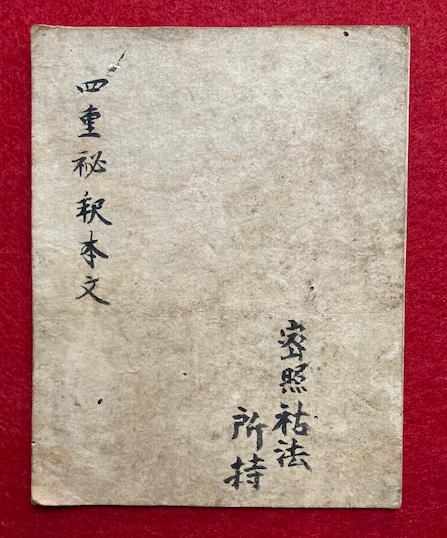 密照祜法
所持
四重祕釈本文